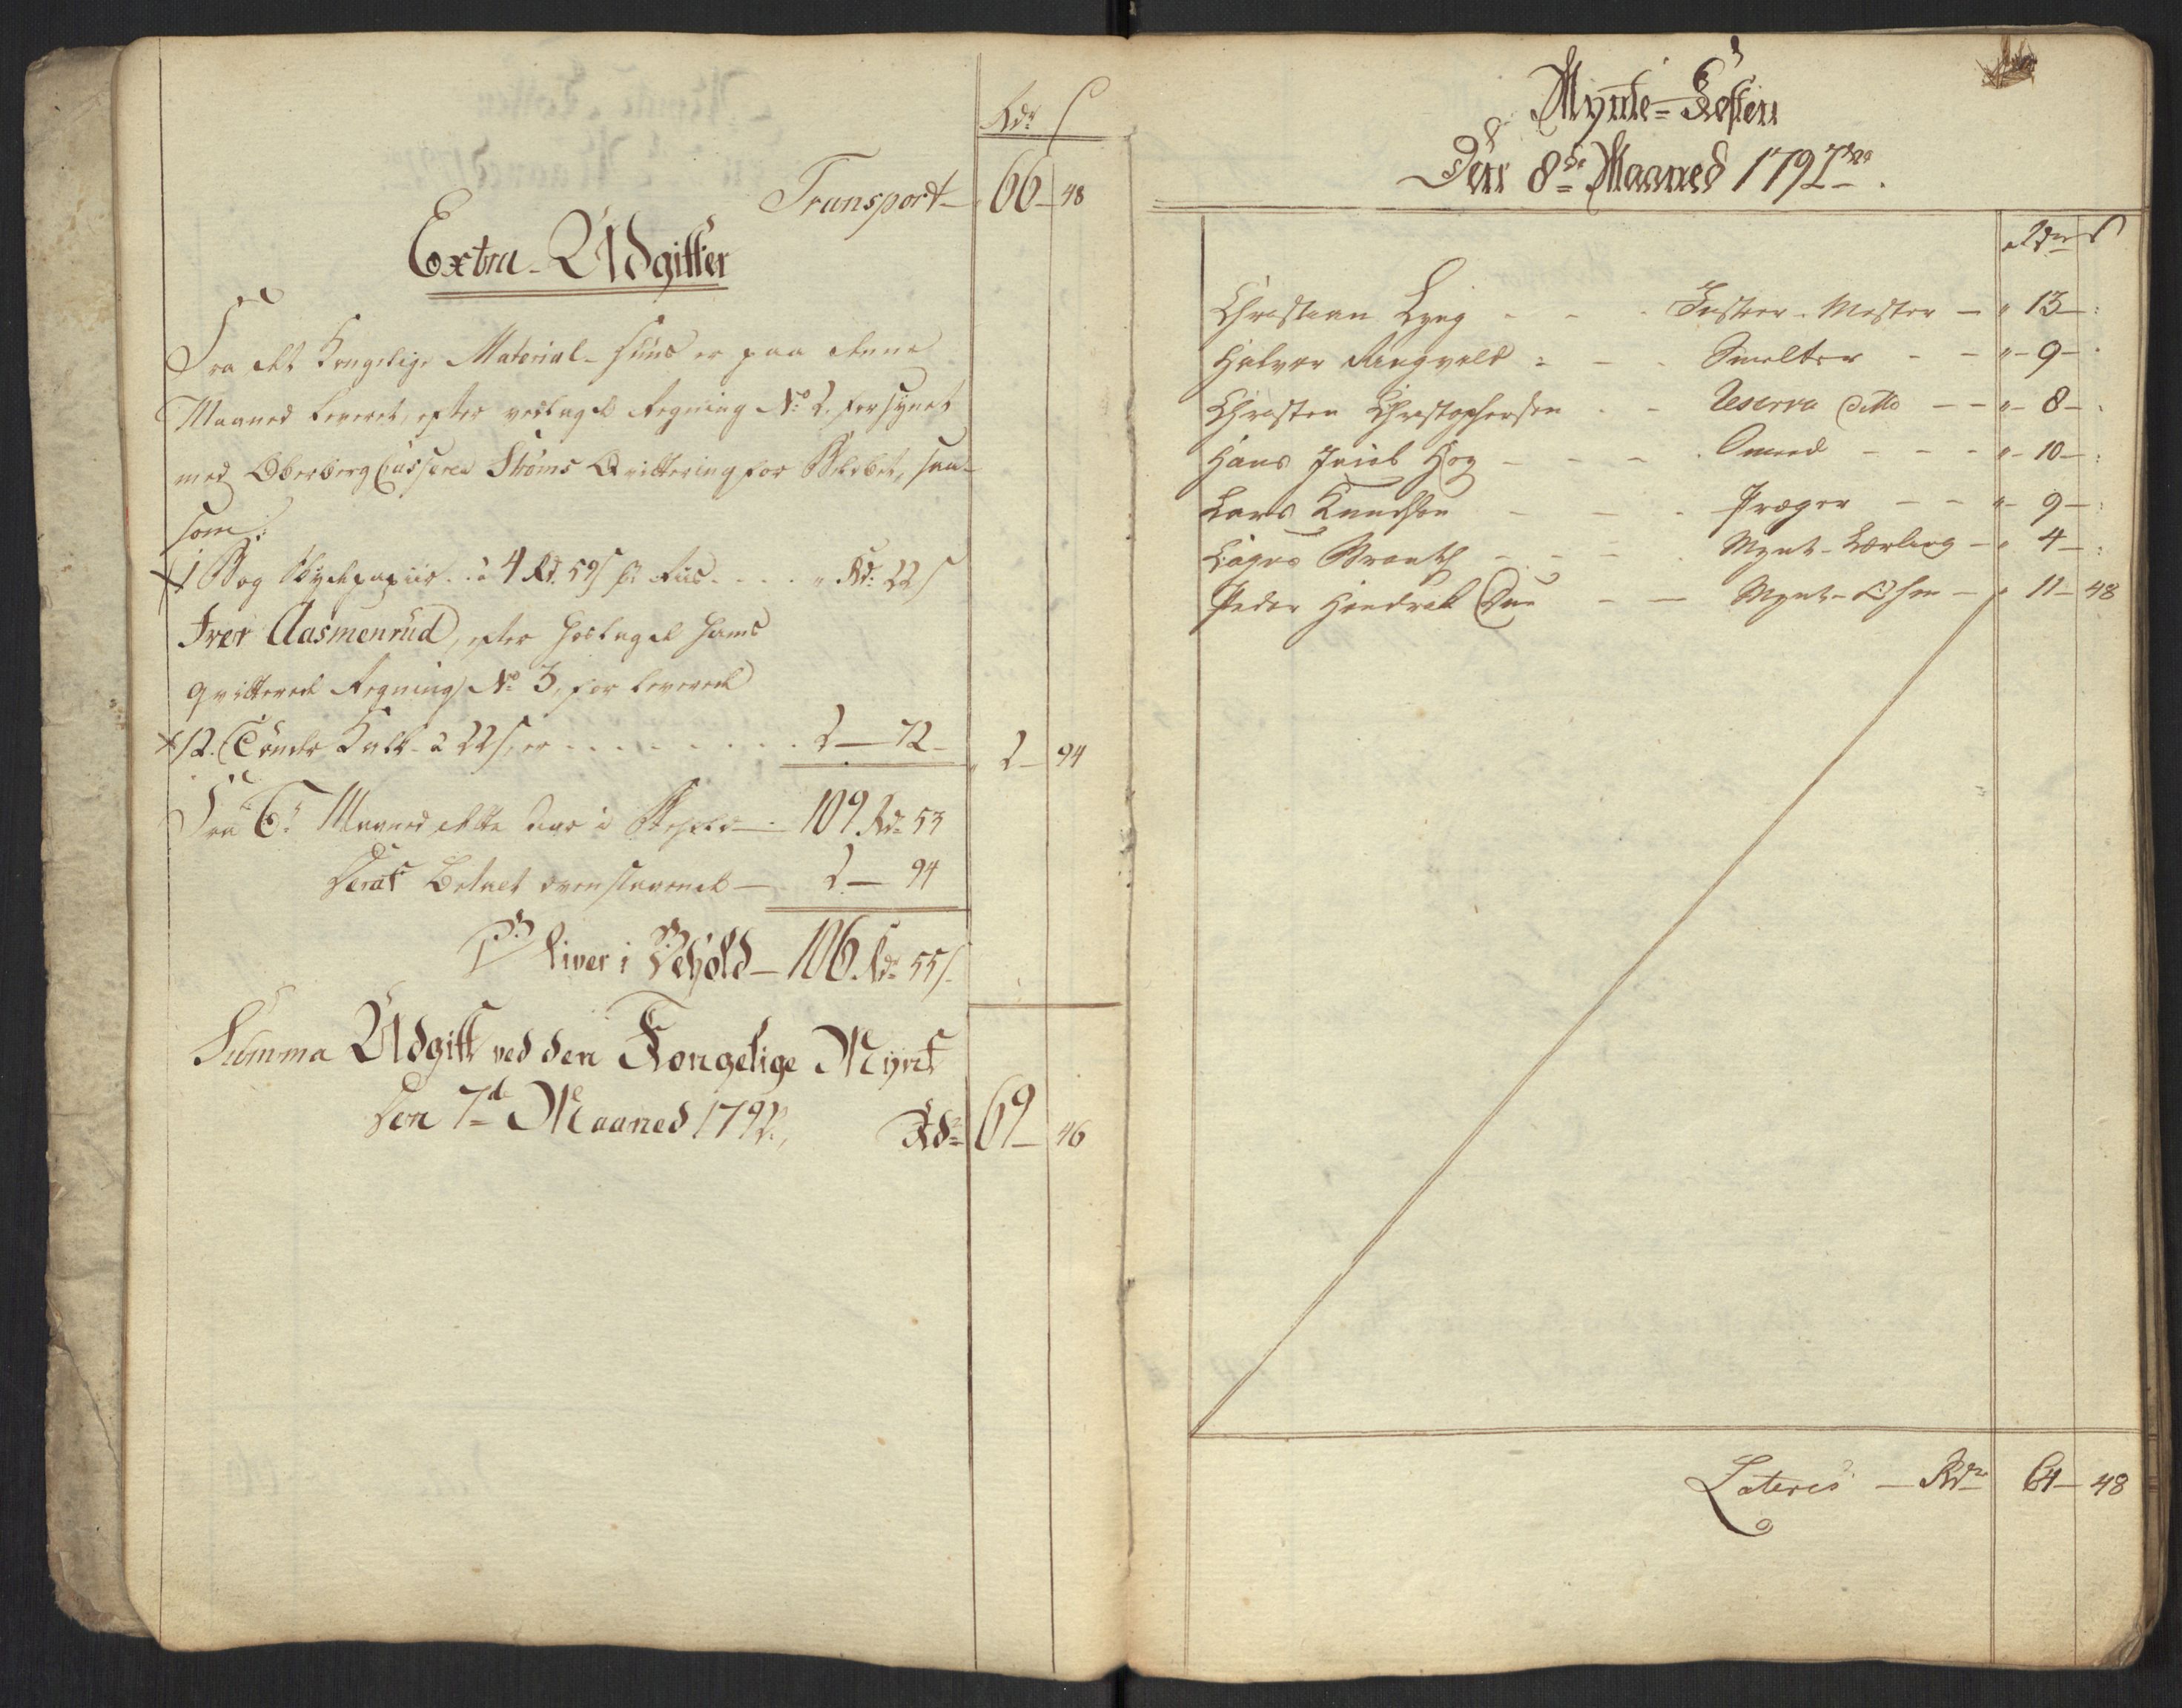 Rdr ſ
Transport — 66 — 48
Extra-Udgifter
Fra det Kongelige Material-Huus er paa denne
Maaned leveret, efter vedlagde Regning No 2, forsynet
med Oberberg Casserer Ströms Qvittering for Beløbet, saa-
som:
1 Bog Trykpapiir à 4 Rd. 59 ſ pr Riis . . . . " Rd: 22 ſ
Iver Aasmenrud, efter hoslagde hans
qvitterede Regning No 3, for leverede
12 Tønder Kull à 22 ſ, er . . . . . . . . 2 — 72 — 2 — 94
Fra 6te Maaned dette Aar i Behold — 109 Rdr 53
Deraf Betalt ovenstaaende — 2 — 94
bliver i Behold — 106 Rdr 55 ſ
Summa Udgift ved den Kongelige Mynt
den 7de Maaned 1792, Rdr 69 — 46
Mynte-Kosten
Den 8de Maaned 1792
Rdr ſ
Christian Lyng - - - Juster-Mester — " 13 — :
Halvor Ringvold - - - Smelter - - " 9 — :
Christen Christophersen - - Reserve ditto — " 8 — :
Hans Jacob Hog - - - Smed - - - " 10 — :
Lars Knudsen - - - Præger - - " 9 — :
Brandt - - - Mynt-Lærling — " 4 — :
Peder Hendrich Due - — Mynt- — " 11 — 48
Lateris — Rdr 64 — 48